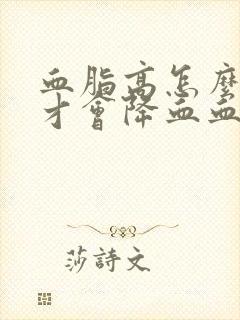 血脂高怎麼
才會降血血
莎詩文